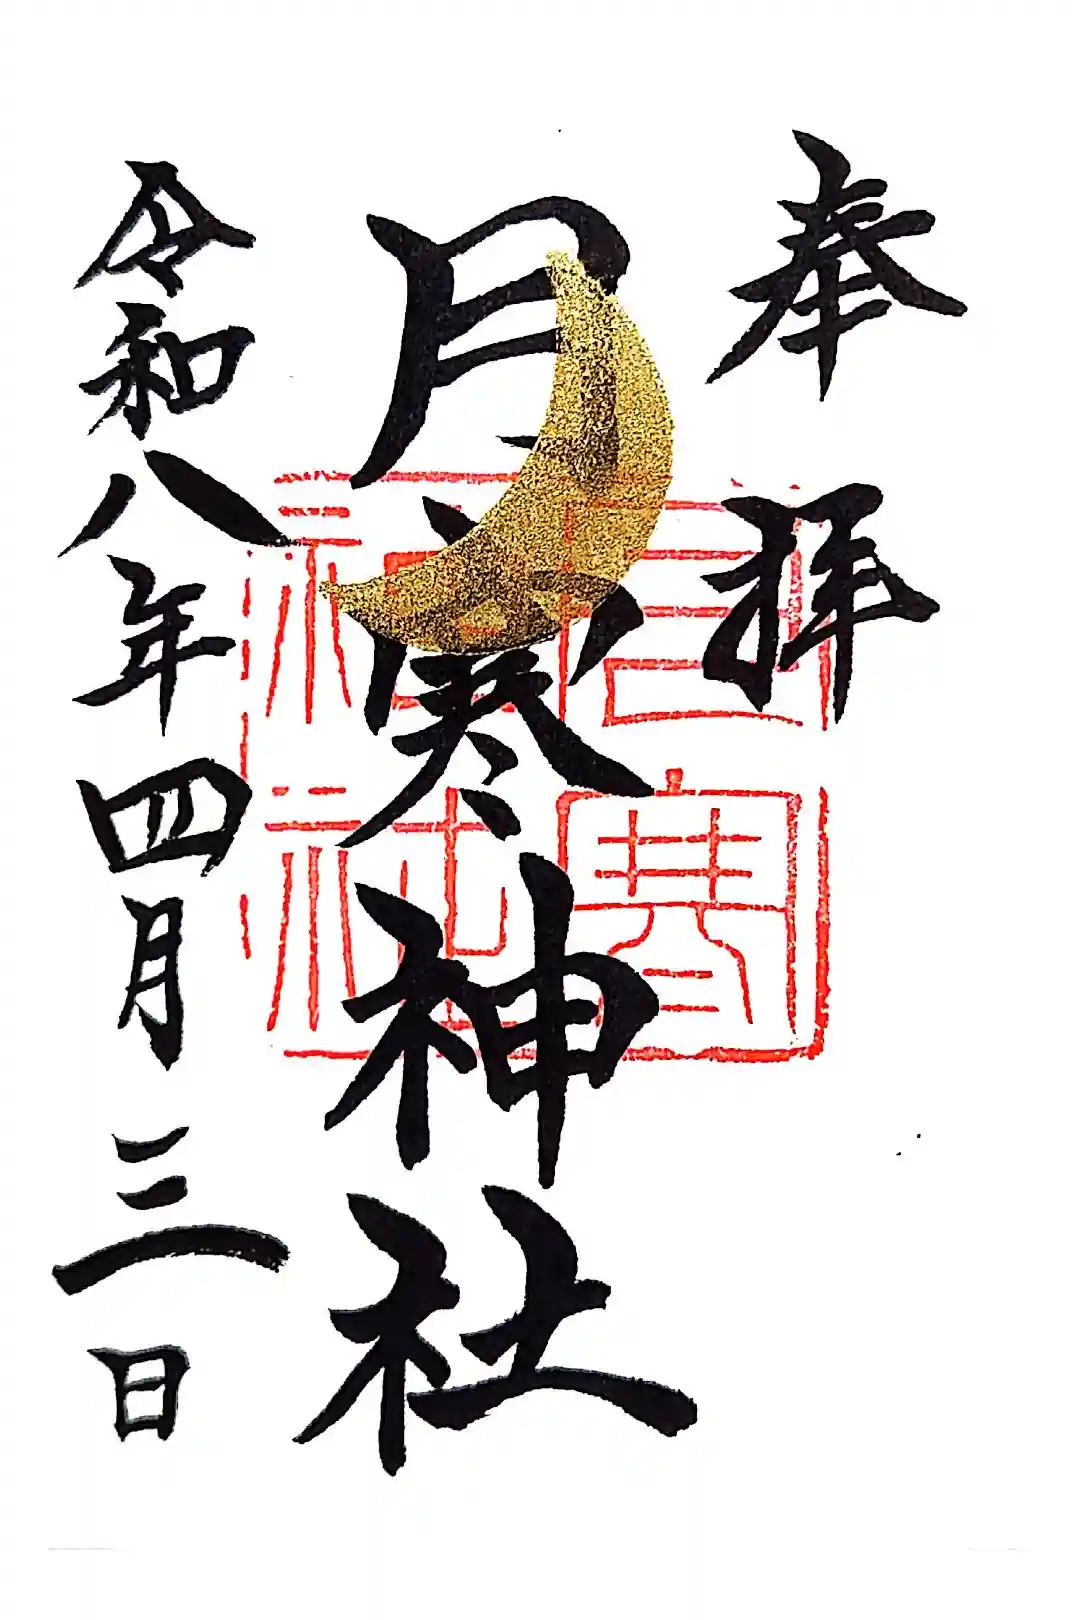 奉拝
月寒神社
令和八年四月三日
月寒
神社